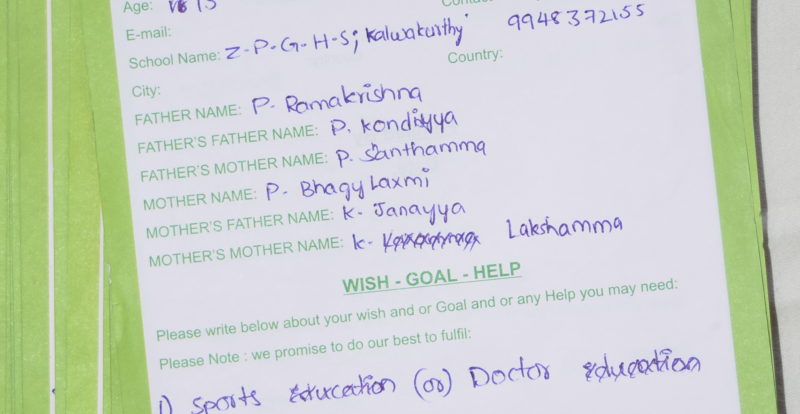 Age: 15
E-mail: 9948372155
School Name: Z-P-G-H-S; Kalwakurthy
City: Country:
FATHER NAME: P. Ramakrishna
FATHER'S FATHER NAME: P. Kondiyya
FATHER'S MOTHER NAME: P. Santhamma
MOTHER NAME: P. Bhagy Laxmi
MOTHER'S FATHER NAME: K. Janayya
MOTHER'S MOTHER NAME: K. Lakshamma
WISH - GOAL - HELP
Please write below about your wish and or Goal and or any Help you may need:
Please Note : we promise to do our best to fulfil:
1) Sports Education (or) Doctor Education